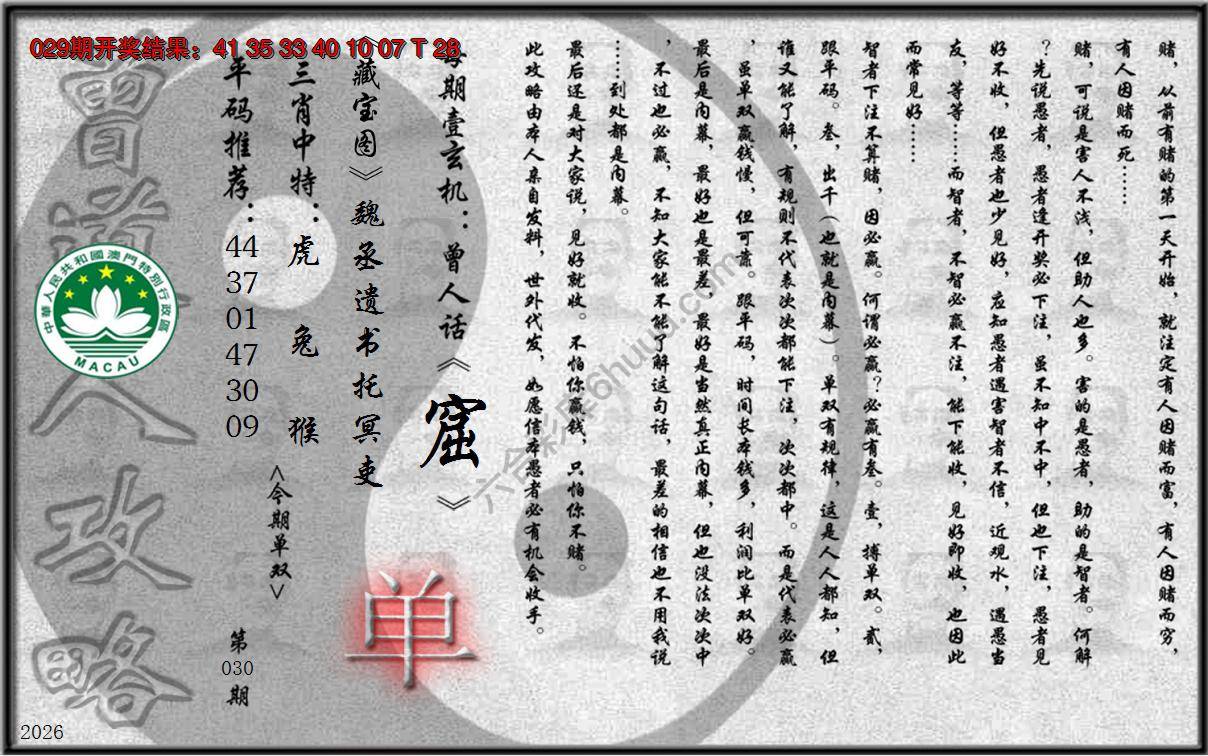 029期开奖结果：41 35 33 40 10 07 T 28
赌，从前有赌的第一天开始，就注定有人因赌而富，有人因赌而穷，
有人因赌而死……
赌，可说是害人不浅，但助人也多。害的是愚者，助的是智者。何解
？先说愚者，愚者逢开奖必下注，虽不知中不中，但也下注，愚者见
好不收，但愚者也少见好，应知愚者遇害智者不信，近观水，遇愚当
友，等等……而智者，不智必赢不注，能下能收，见好即收，也因此
而常见好……
智者下注不算赌，因必赢。何谓必赢？必赢有叁。壹，搏单双。贰，
跟平码。叁，出千（也就是内幕）。单双有规律，这是人人都知，但
谁又能了解，有规则不代表次次都能下注，次次都中。而是代表必赢
，虽单双赢钱慢，但可靠。跟平码，时间长本钱多，利润比单双好。
最后是内幕，最好也是最差，最好是当然真正内幕，但也没法次次中
，不过也必赢，不知大家能不能了解这句话，最差的相信也不用我说
……到处都是内幕。
最后还是对大家说，见好就收。不怕你赢钱，只怕你不赌。
此攻略由本人亲自发料，世外代发，如愿信本愚者必有机会收手。
每期壹玄机：曾人话《窟》
《藏宝图》魏丞遗书托冥吏
三肖中特：虎 兔 猴
平码推荐：
44
37
01
47
30
09
<今期单双>
单
第
030
期
曾道人攻略
中華人民共和國澳門特別行政區
MACAU
六合彩库6huuu.com
2026